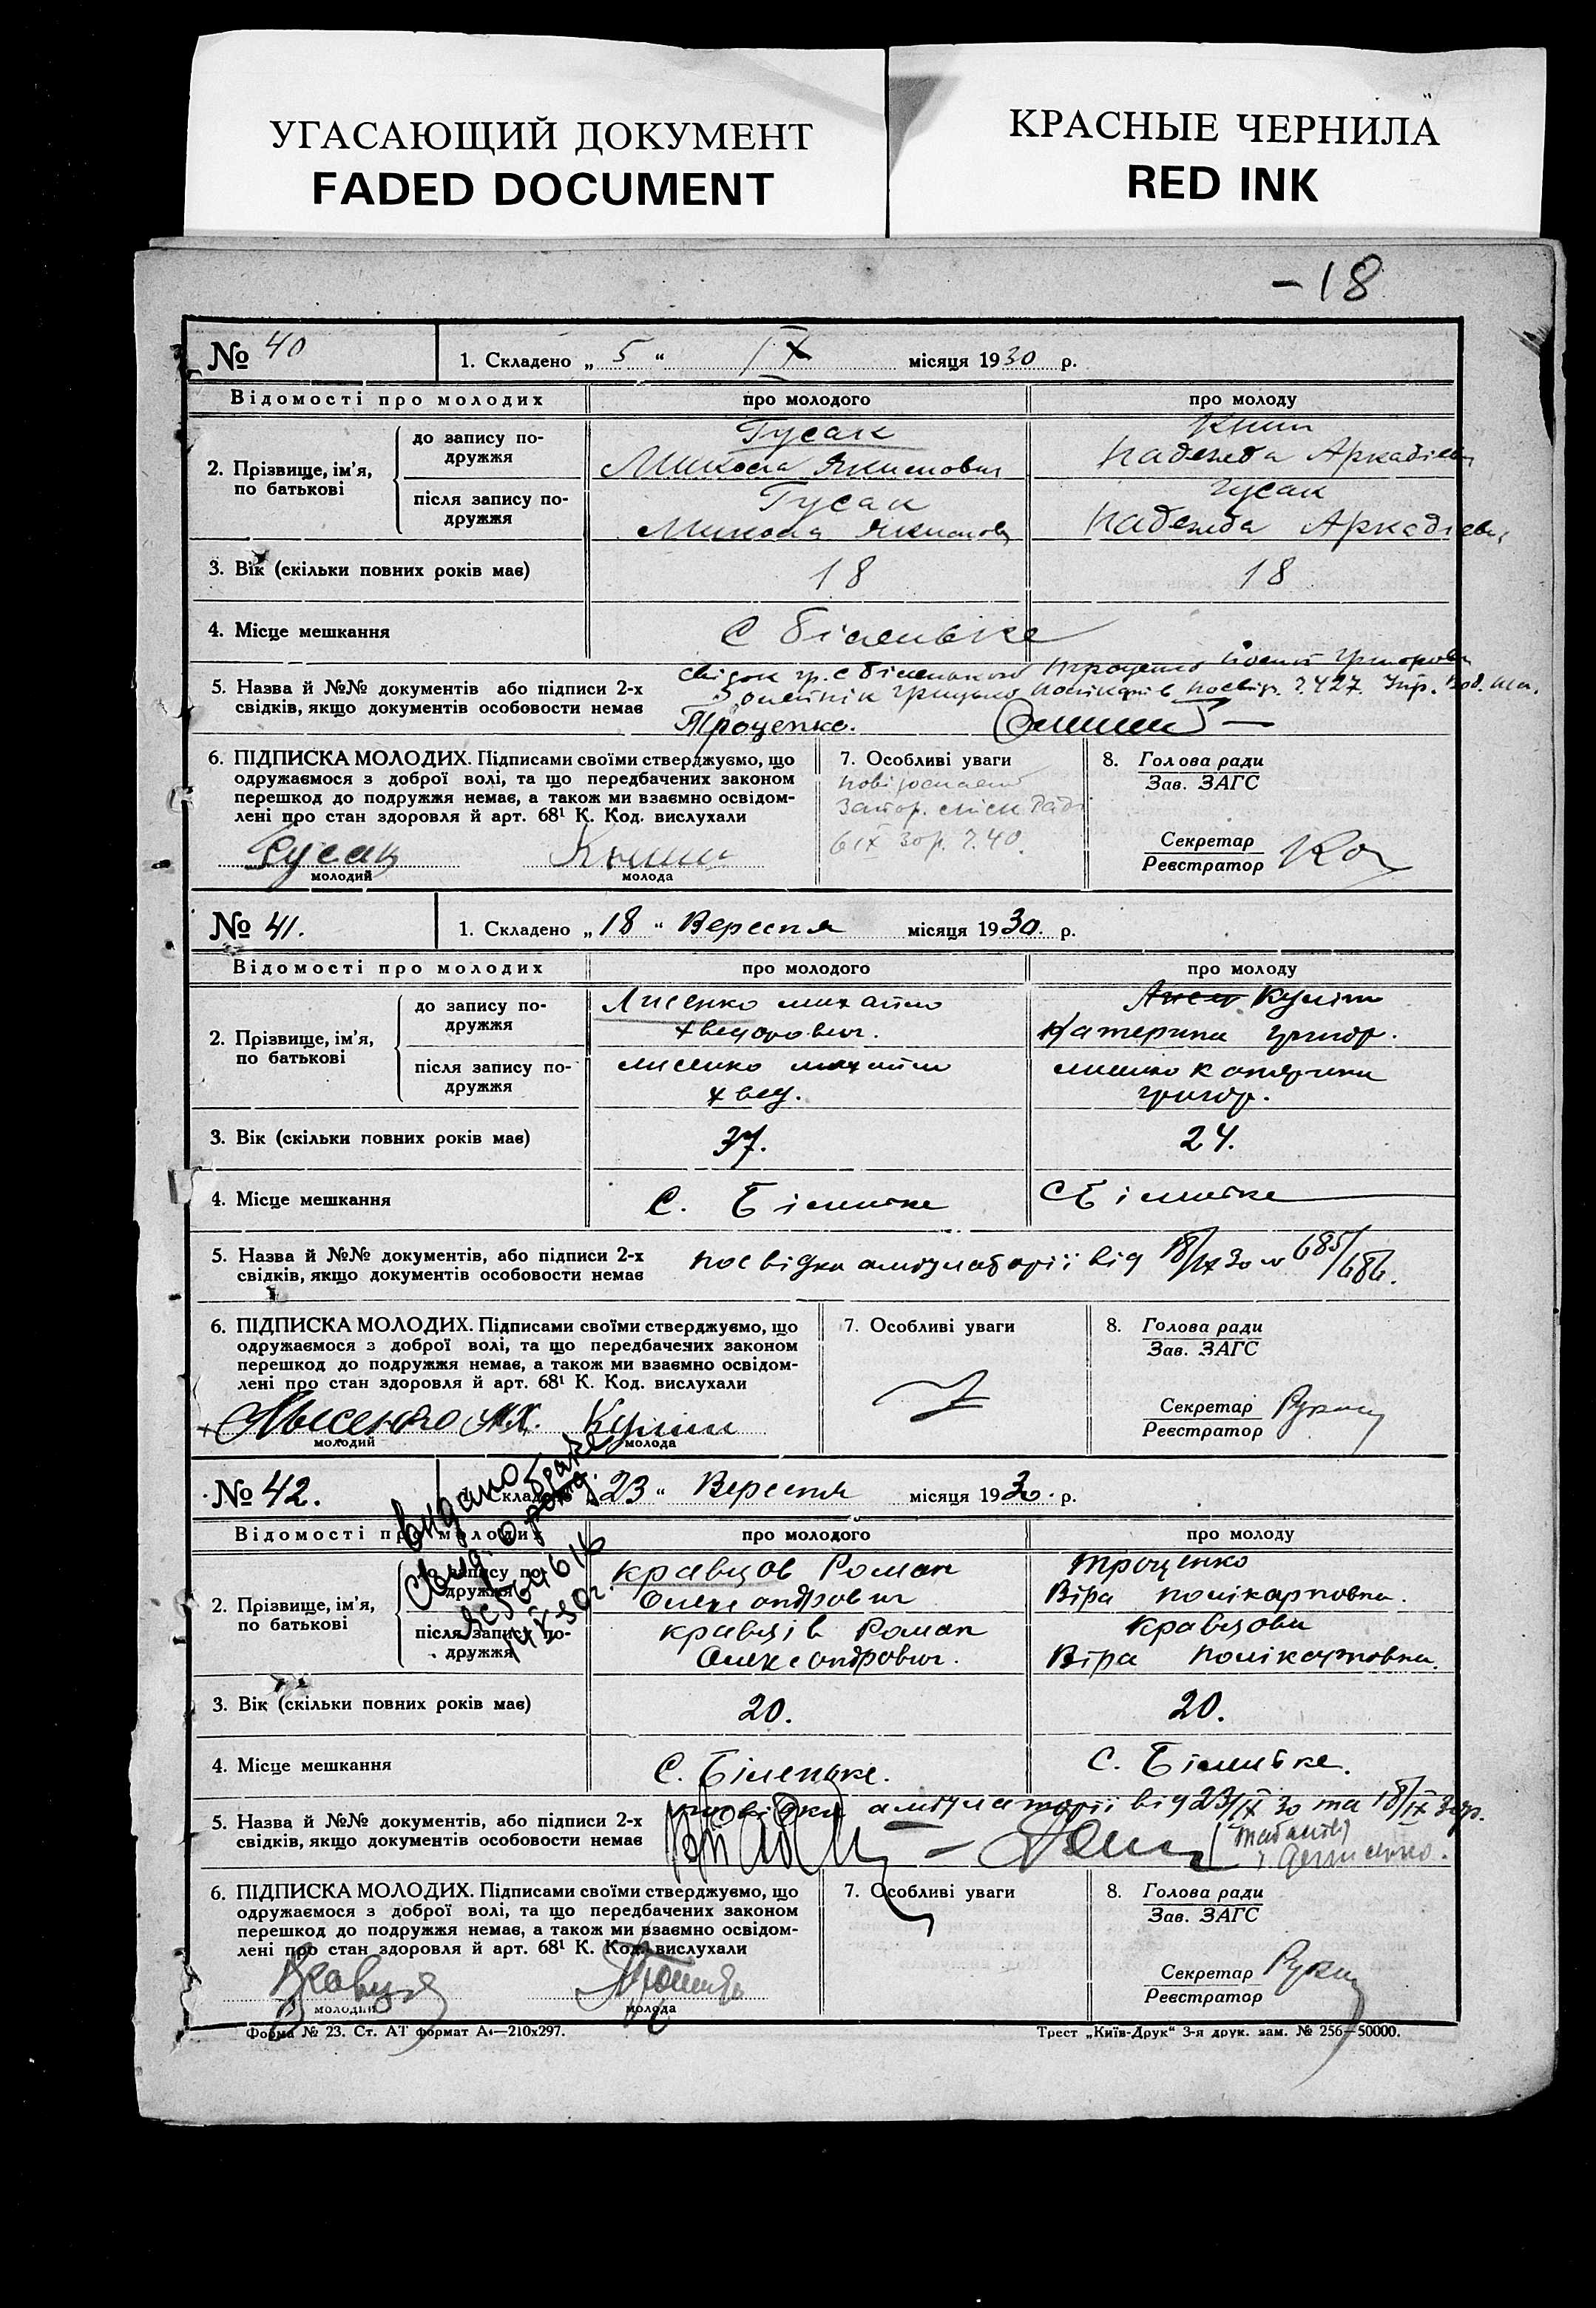 УГАСАЮЩИЙ ДОКУМЕНТ
FADED DOCUMENT
КРАСНЫЕ ЧЕРНИЛА
RED INK
-18
№ 40 1. Складено „5“ IX місяця 1930 р.
Відомості про молодих про молодого про молоду
2. Прізвище, ім'я, по батькові
до запису подружжя
Гусак
Микола Якимович
Надежда Аркадіевн
після запису подружжя
Гусак
Микола Якимов
Гусак
Надежда Аркадіевн
3. Вік (скільки повних років має) 18 18
4. Місце мешкання С Біленьке
5. Назва й №№ документів або підписи 2-х
свідків, якщо документів особовости немає
Троценко.
6. ПІДПИСКА МОЛОДИХ. Підписами своїми стверджуємо, що
одружаємося з доброї волі, та що передбачених законом
перешкод до подружжя немає, а також ми взаємно освідом-
лені про стан здоровля й арт. 68¹ К. Код. вислухали
Гусак
молодий молода
7. Особливі уваги
6 IX 30 р. №. 40.
8. Голова ради
Зав. ЗАГС
Секретар
Реєстратор
№ 41. 1. Складено „18“ Вересня місяця 1930. р.
Відомості про молодих про молодого про молоду
2. Прізвище, ім'я, по батькові
до запису подружжя
Лисенко михайло
Хведорович.
Куліш
Катерина григор.
після запису подружжя
лисенко михайло
хвед.
лисенко катерина
григор.
3. Вік (скільки повних років має) 37. 24.
4. Місце мешкання С. Біленьке С Біленьке
5. Назва й №№ документів, або підписи 2-х
свідків, якщо документів особовости немає
посвідки амбулаторії від 18/IX 30 № 685/686.
6. ПІДПИСКА МОЛОДИХ. Підписами своїми стверджуємо, що
одружаємося з доброї волі, та що передбачених законом
перешкод до подружжя немає, а також ми взаємно освідом-
лені про стан здоровля й арт. 68¹ К. Код. вислухали
Лысенко М.Х. Куліш
молодий молода
7. Особливі уваги
8. Голова ради
Зав. ЗАГС
Секретар
Реєстратор
№ 42. 1. Складено „23“ Вересня місяця 1930. р.
Видано
Свид. о браке
Відомості про молодих про молодого про молоду
2. Прізвище, ім'я, по батькові
до запису подружжя
кравцов Роман
Олександрович
Троценко
Віра полікарповна.
після запису подружжя
кравців Роман
Олександрович.
Кравцова
Віра полікарповна.
3. Вік (скільки повних років має) 20. 20.
4. Місце мешкання С. Біленьке. С. Біленьке.
5. Назва й №№ документів, або підписи 2-х
свідків, якщо документів особовости немає
посвідки амбулаторії від 23/IX 30 та 18/IX 30р.
6. ПІДПИСКА МОЛОДИХ. Підписами своїми стверджуємо, що
одружаємося з доброї волі, та що передбачених законом
перешкод до подружжя немає, а також ми взаємно освідом-
лені про стан здоровля й арт. 68¹ К. Код. вислухали
молодий молода
7. Особливі уваги
8. Голова ради
Зав. ЗАГС
Секретар
Реєстратор
Форма № 23. Ст. АТ формат А4—210х297.
Трест „Київ-Друк“ 3-я друк. зам. № 256—50000.